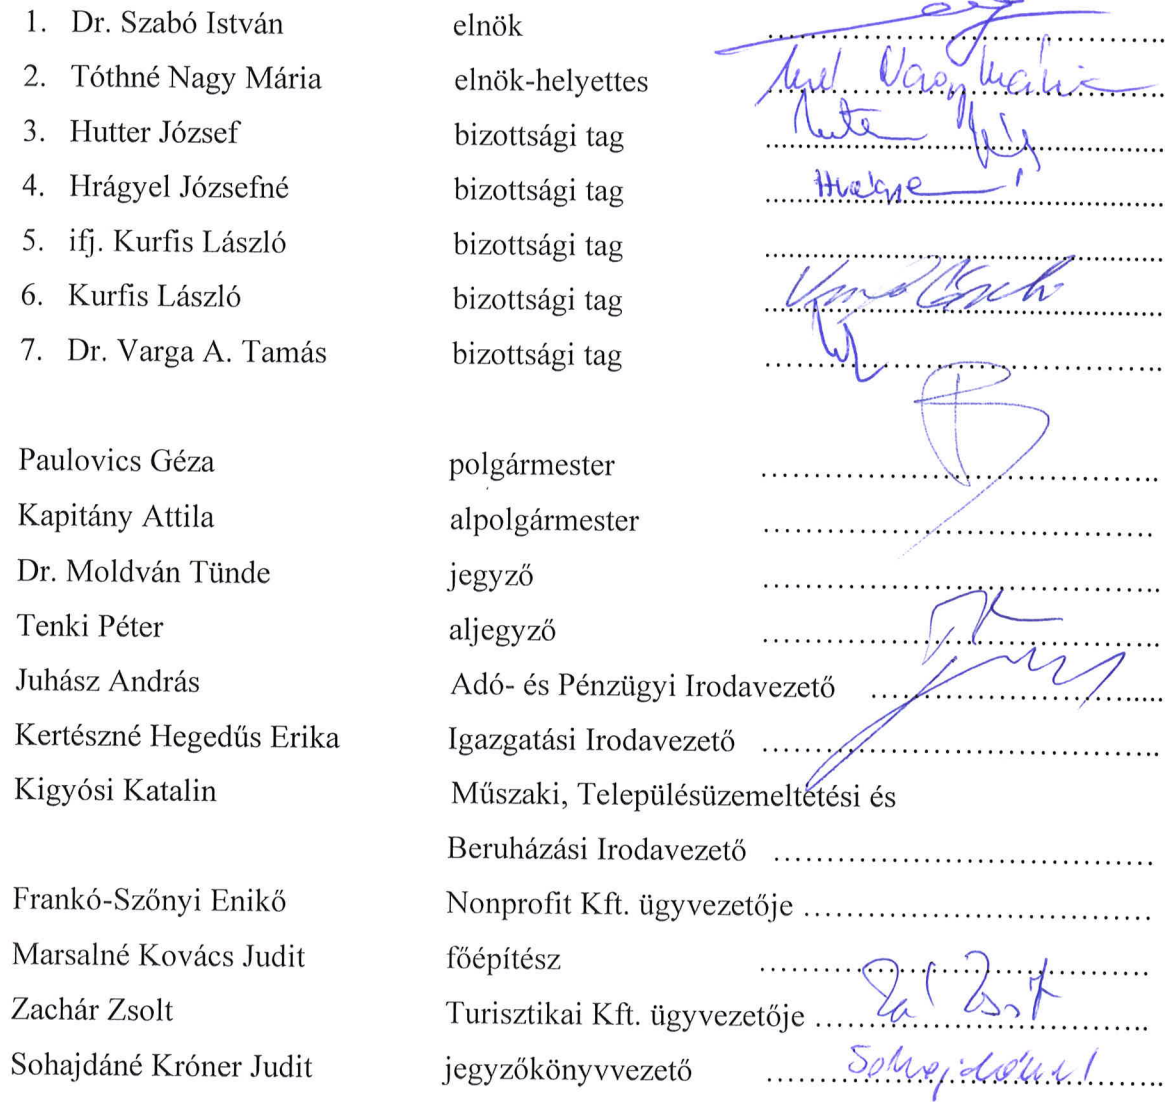 1. Dr. Szabó István elnök ........................................
2. Tóthné Nagy Mária elnök-helyettes Nagy Mária
3. Hutter József bizottsági tag ........................................
4. Hrágyel Józsefné bizottsági tag ........................................
5. ifj. Kurfis László bizottsági tag ........................................
6. Kurfis László bizottsági tag László
7. Dr. Varga A. Tamás bizottsági tag ........................................
Paulovics Géza polgármester ........................................
Kapitány Attila alpolgármester ........................................
Dr. Moldván Tünde jegyző ........................................
Tenki Péter aljegyző ........................................
Juhász András Adó- és Pénzügyi Irodavezető ..............................
Kertészné Hegedűs Erika Igazgatási Irodavezető ........................................
Kigyósi Katalin Műszaki, Településüzemeltetési és
Beruházási Irodavezető ....................................
Frankó-Szőnyi Enikő Nonprofit Kft. ügyvezetője ....................................
Marsalné Kovács Judit főépítész ........................................
Zachár Zsolt Turisztikai Kft. ügyvezetője Zsolt
Sohajdáné Króner Judit jegyzőkönyvvezető Sohajdáné